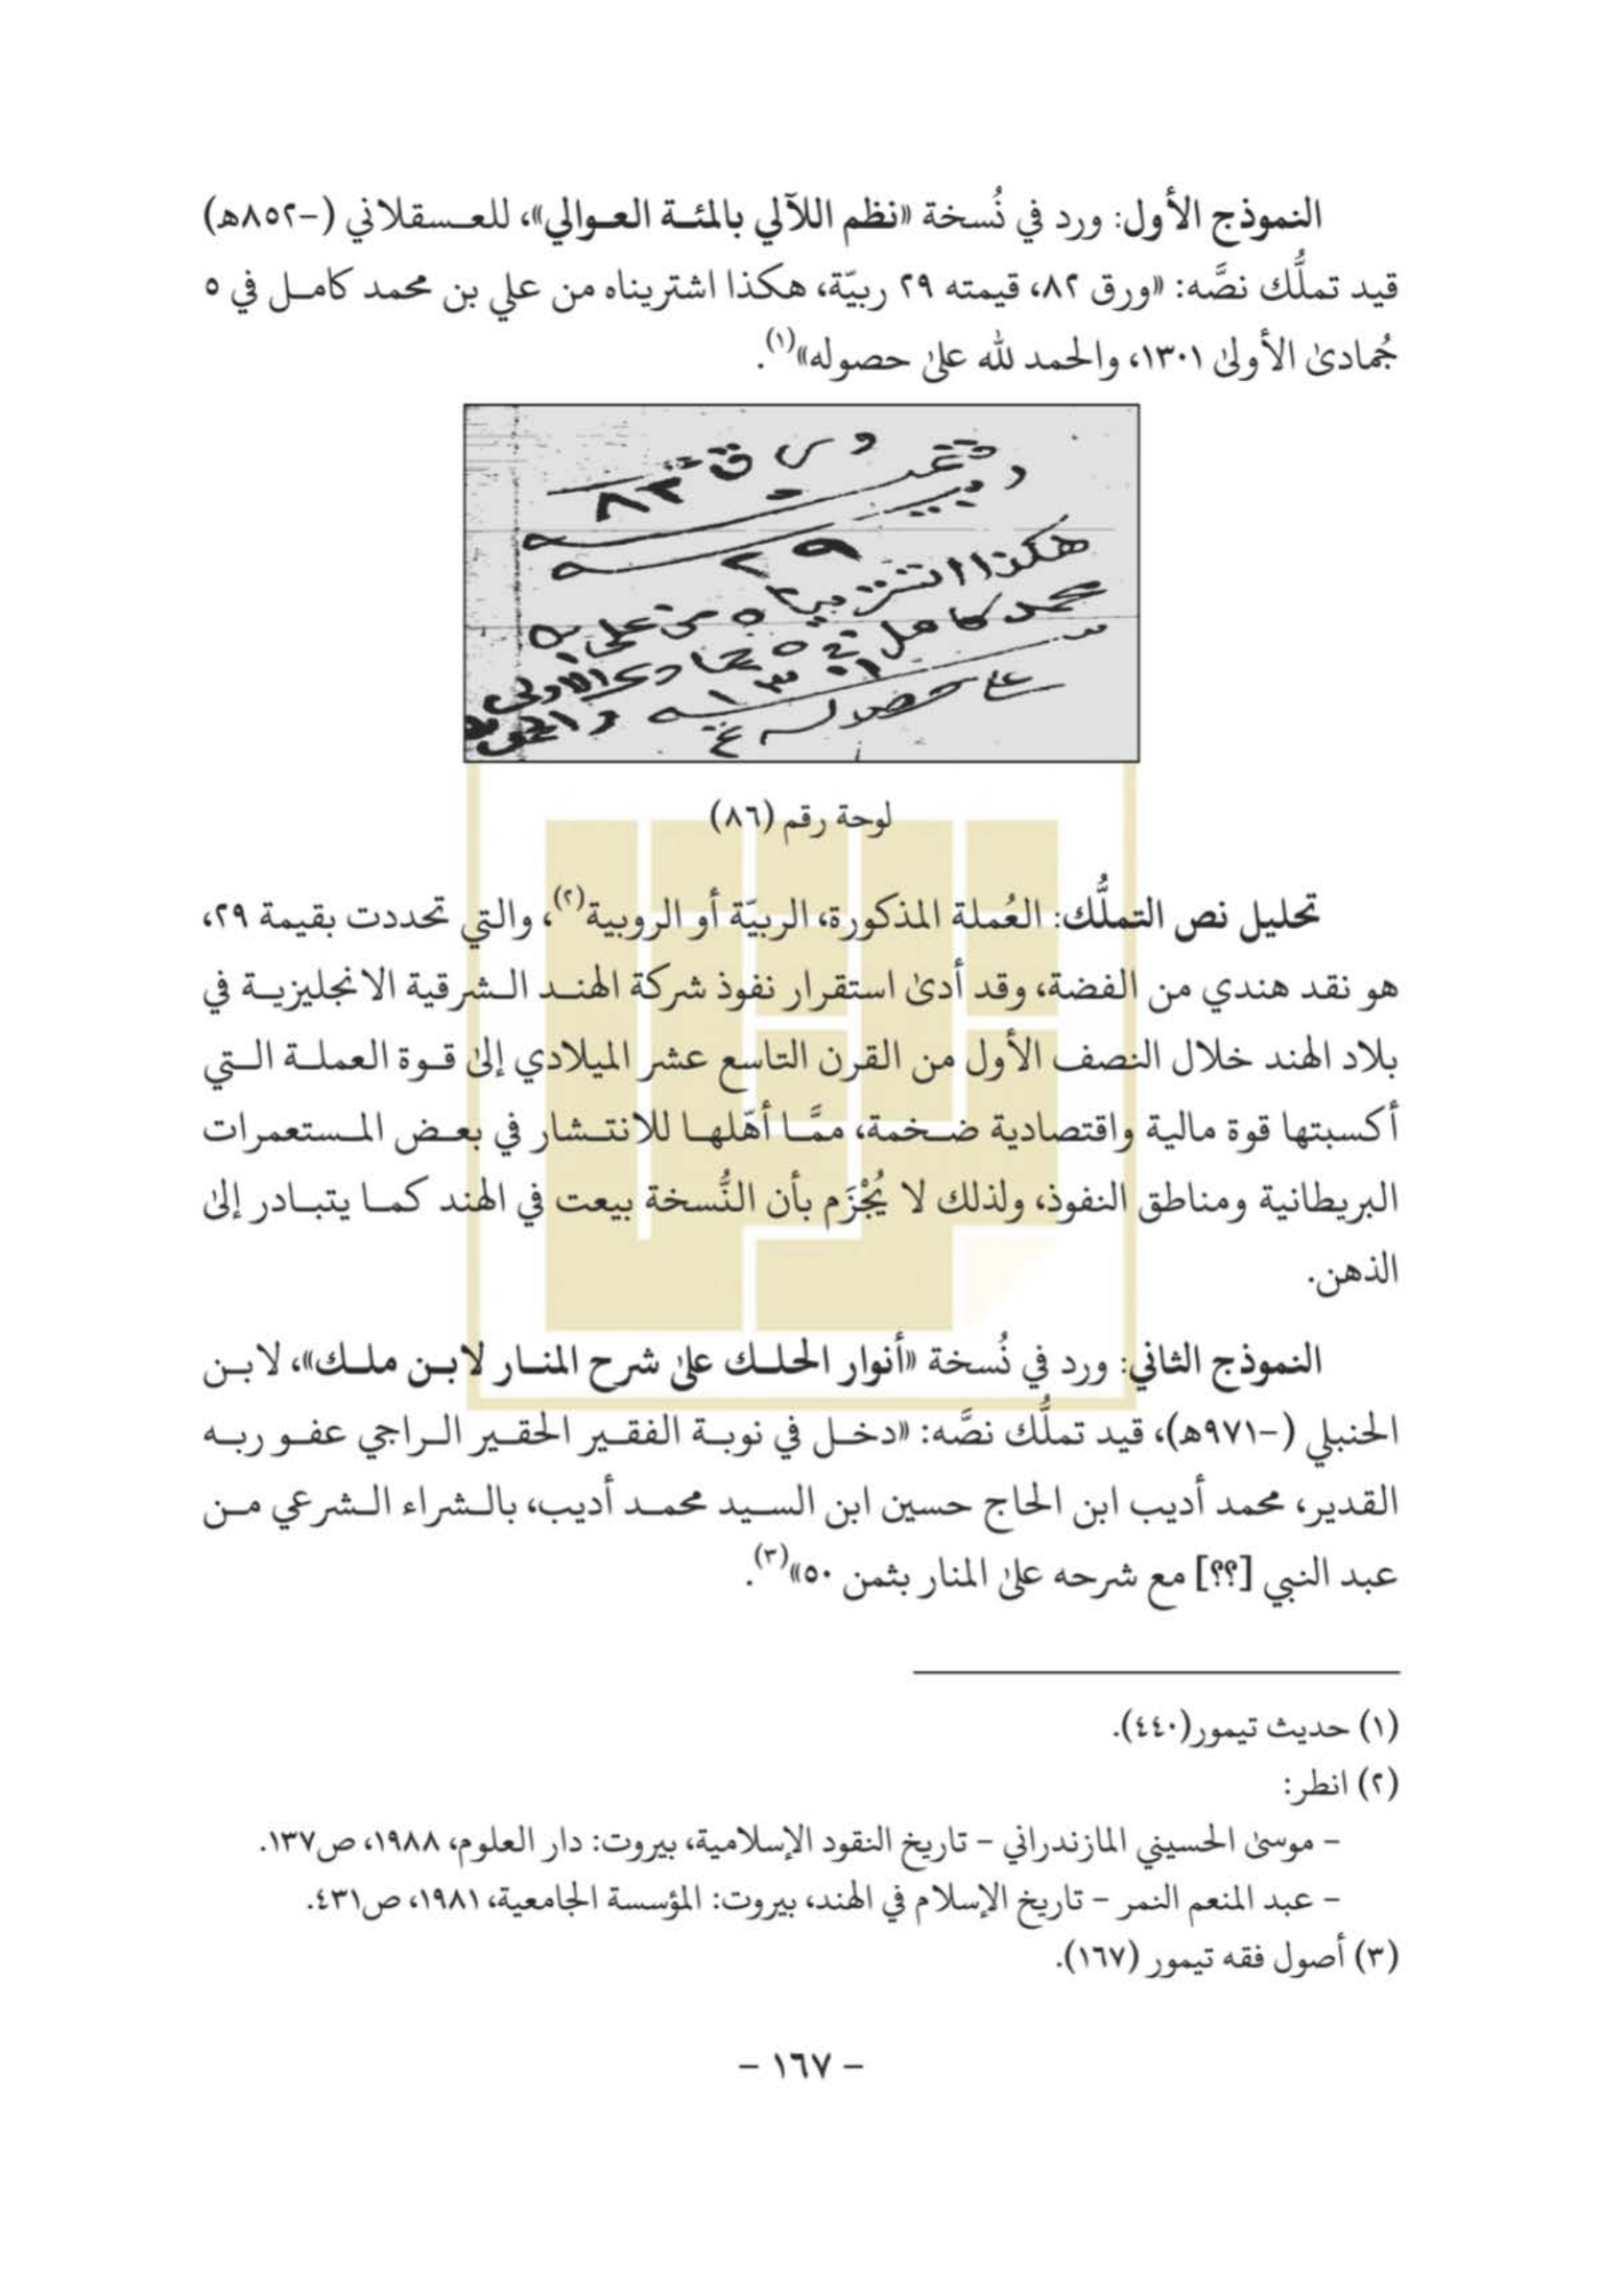 النموذج الأول: ورد في نُسخة «نظم اللآلي بالمئة العوالي»، للعسقلاني (-٨٥٢هـ)
قيد تملُّك نصَّه: «ورق ٨٢، قيمته ٢٩ ربيّة، هكذا اشتريناه من علي بن محمد كامل في ٥
جُمادىٰ الأولىٰ ١٣٠١، والحمد لله علىٰ حصوله»(١).
ورق
٨٢
٢٩
هكذا اشتريناه من علي بن
محمد كامل في ٥ جمادى الاولى
١٣٠١ والحمد لله
على حصوله
لوحة رقم (٨٦)
تحليل نص التملُّك: العُملة المذكورة، الربيّة أو الروبية(٢)، والتي تحددت بقيمة ٢٩،
هو نقد هندي من الفضة، وقد أدىٰ استقرار نفوذ شركة الهند الشرقية الانجليزية في
بلاد الهند خلال النصف الأول من القرن التاسع عشر الميلادي إلىٰ قوة العملة التي
أكسبتها قوة مالية واقتصادية ضخمة، ممَّا أهّلها للانتشار في بعض المستعمرات
البريطانية ومناطق النفوذ، ولذلك لا يُجْزَم بأن النُّسخة بيعت في الهند كما يتبادر إلىٰ
الذهن.
النموذج الثاني: ورد في نُسخة «أنوار الحلك علىٰ شرح المنار لابن ملك»، لابن
الحنبلي (-٩٧١هـ)، قيد تملُّك نصَّه: «دخل في نوبة الفقير الحقير الراجي عفو ربه
القدير، محمد أديب ابن الحاج حسين ابن السيد محمد أديب، بالشراء الشرعي من
عبد النبي [؟؟] مع شرحه علىٰ المنار بثمن ٥٠»(٣).
(١) حديث تيمور(٤٤٠).
(٢) انطر:
– موسىٰ الحسيني المازندراني – تاريخ النقود الإسلامية، بيروت: دار العلوم، ١٩٨٨، ص١٣٧.
– عبد المنعم النمر – تاريخ الإسلام في الهند، بيروت: المؤسسة الجامعية، ١٩٨١، ص٤٣١.
(٣) أصول فقه تيمور (١٦٧).
– ١٦٧ –